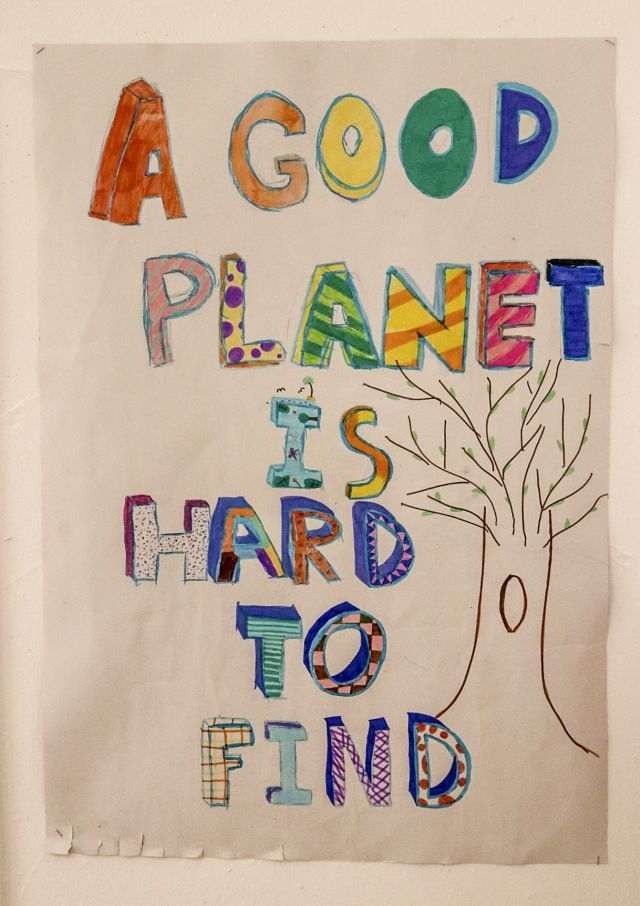 A GOOD
PLANET
IS
HARD
TO
FIND